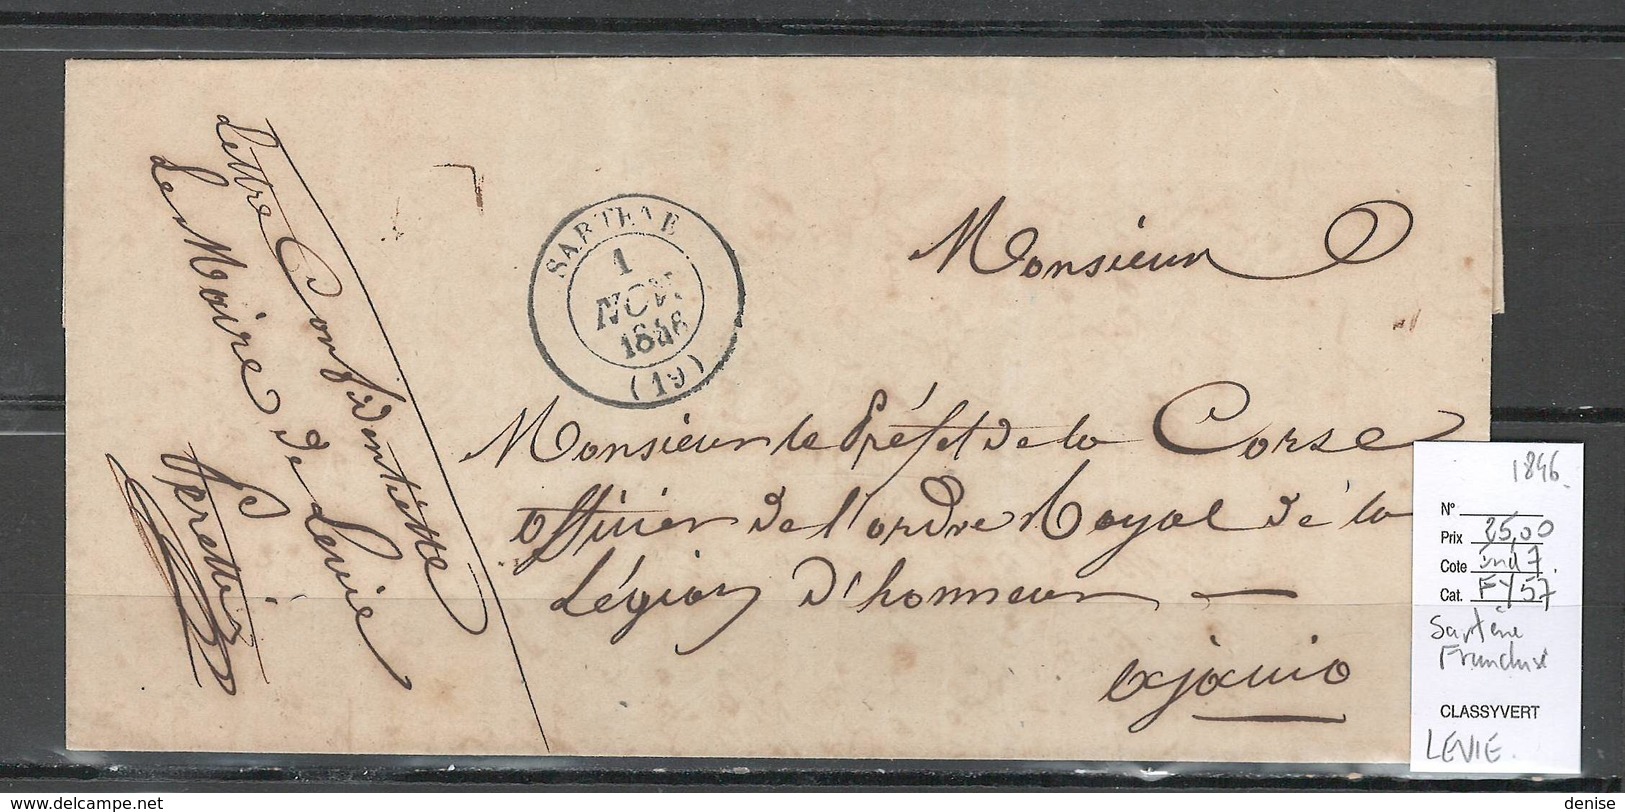 Lettre Confidentielle
Le Maire de Levie
Peretti
SARTENE
1
NOV.
1846
(19)
Monsieur
Monsieur le Préfet de la Corse
officier de l'ordre Royal de la
Légion d'honneur —
ajaccio
1846
N°
Prix 25,00
Cote ind 7
Cat. FY57
Sartène
Franchise
CLASSYVERT
LEVIE.
denise - delcampe.net